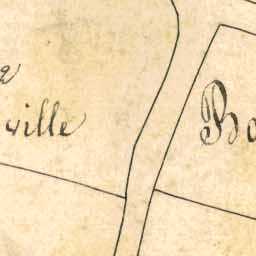 ville
Bo